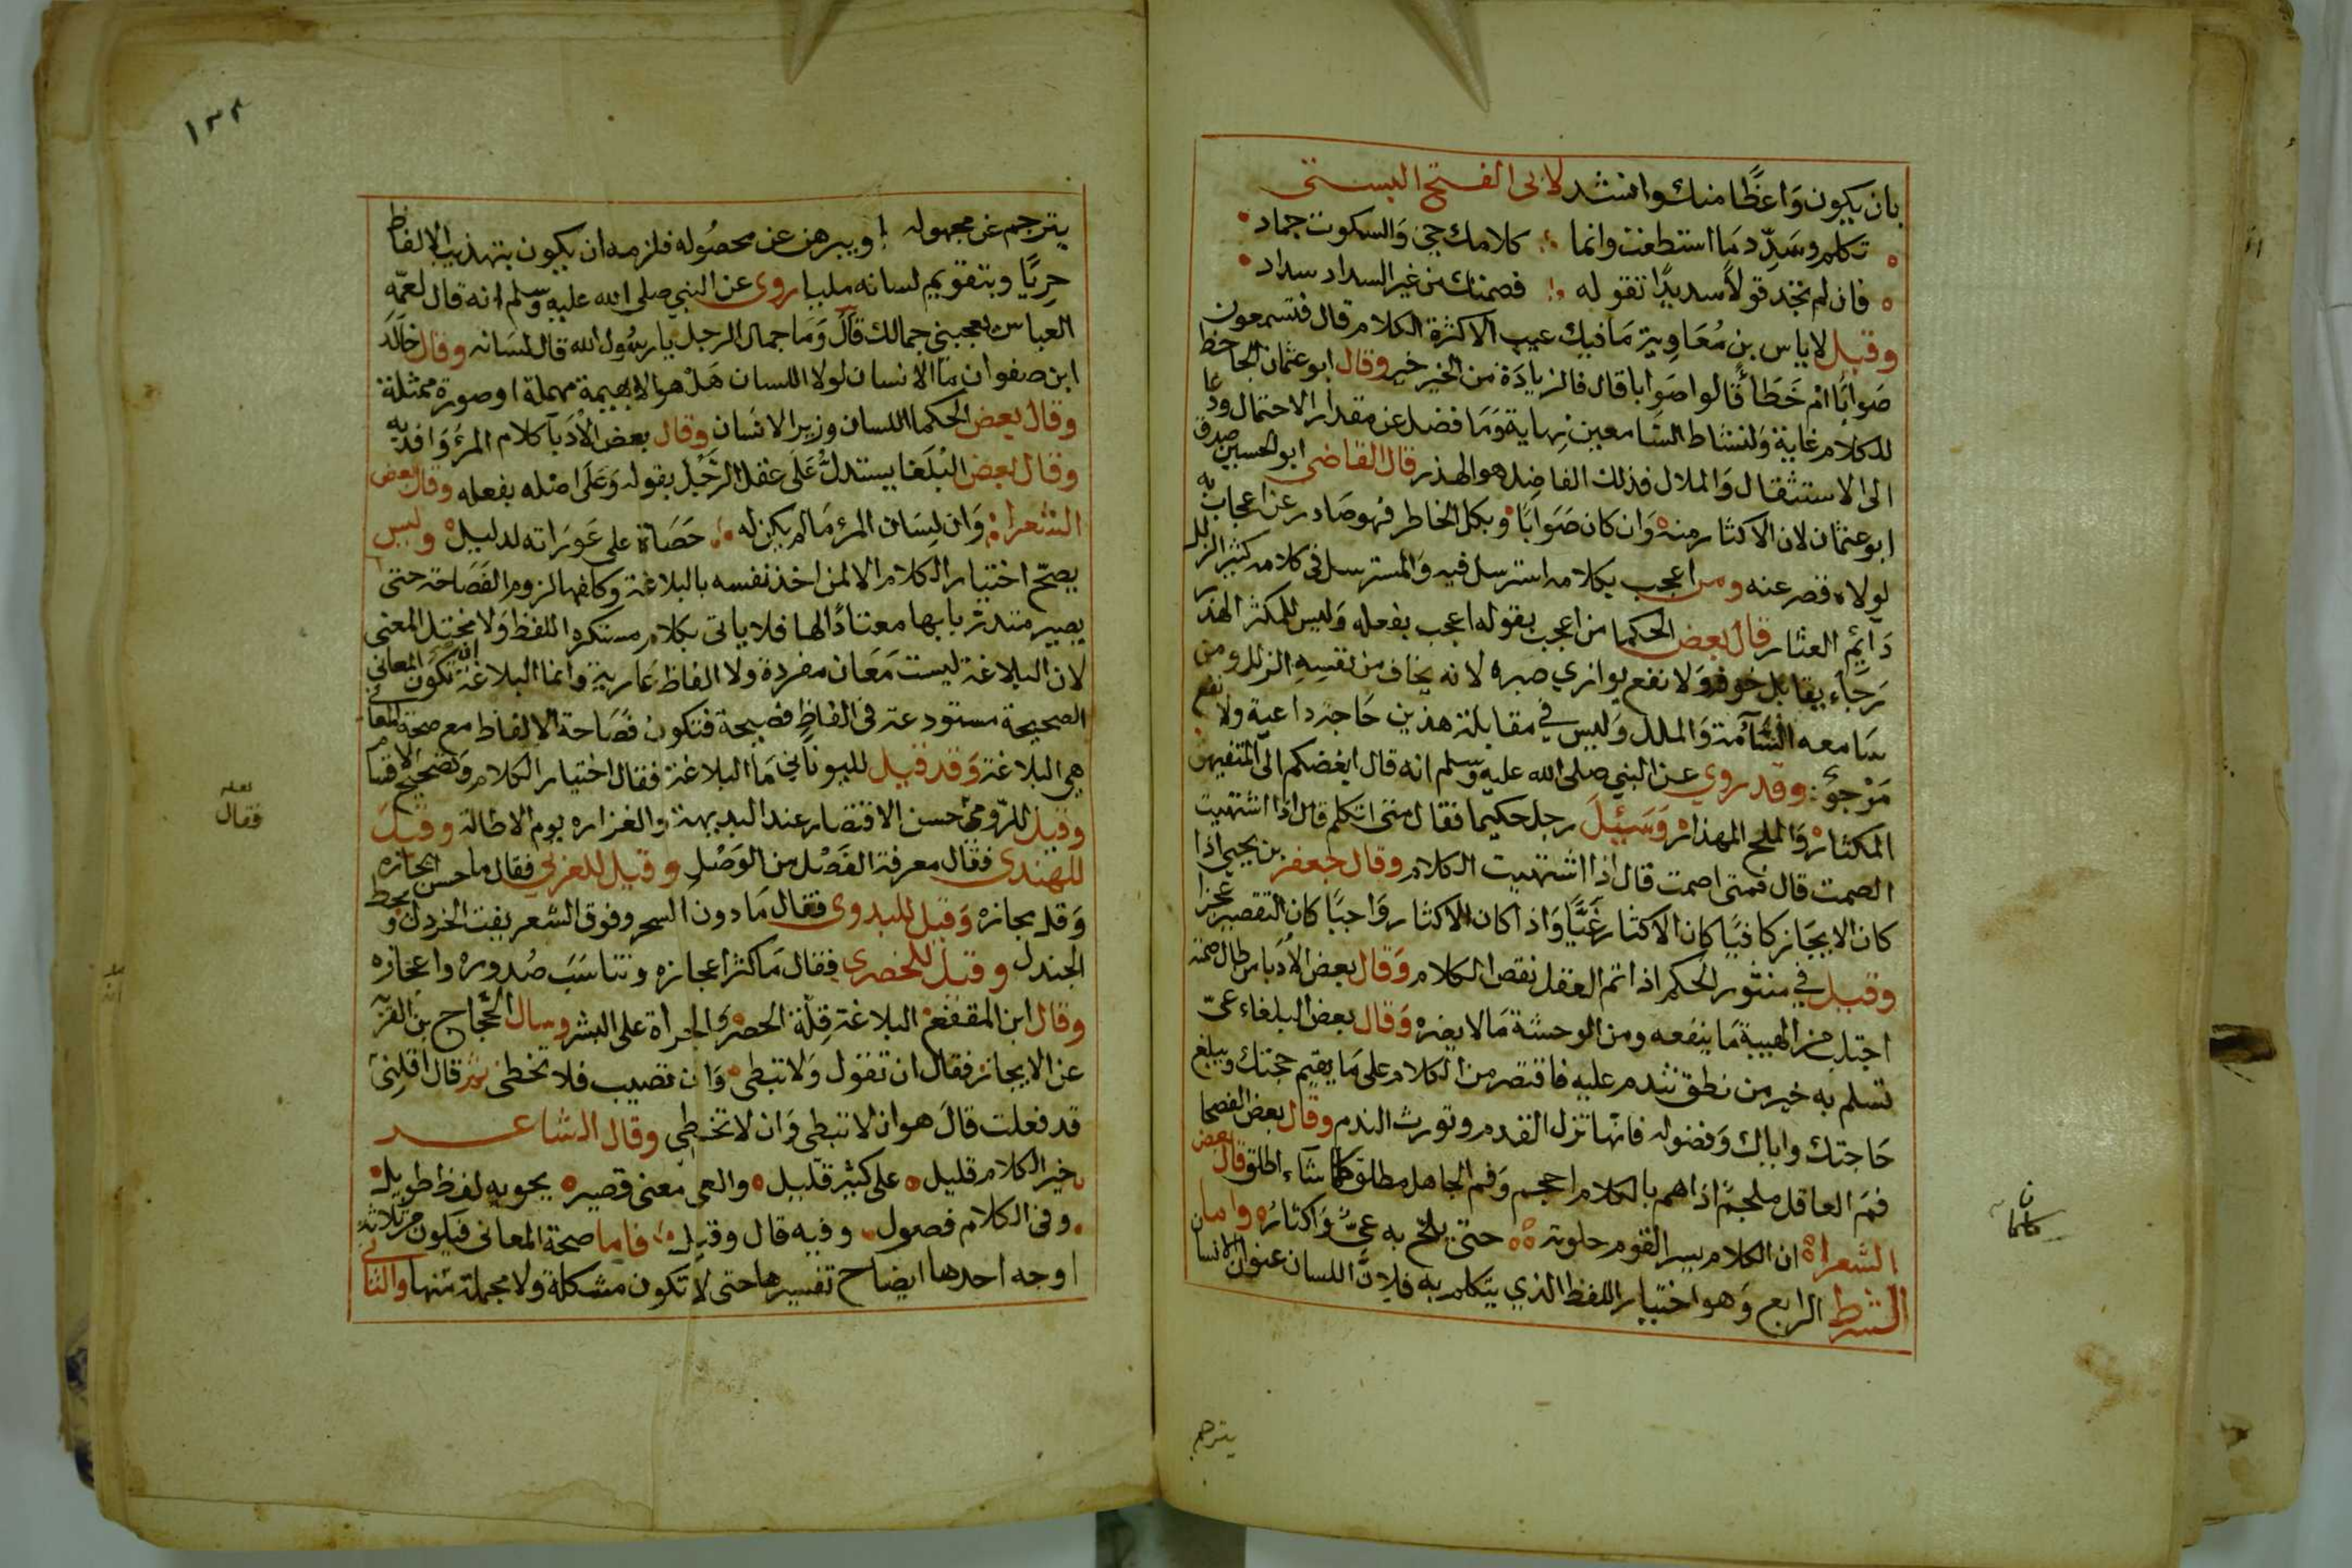 بان يكون وَاعظًا منك وانشد لابى الفتح البستى
تكلم وسَدِّد مَا استطعت وانما كلامك حي وَالسكوت جماد
فان لم تجد قولاً سديدًا تقوله فصمتك من غير السداد سداد
وقيل لاياس بن مُعَاوية مَا فيك عيب الا كثرة الكلام قال فتسمعون
صَوابًا ام خَطَأً قالوا صَوابا قال فالزيادَة من الخير خير وقال ابو عثمان الجاحظ
للكلام غاية وَلنشاط السَّامعين نهاية وَمَا فضل عن مقدار الاحتمال ودعا
الى الاستثقال وَالملال فذلك الفاضِل هو الهذر قال القاضى ابو الحسين صدق
ابو عثمان لان الاكثار منه وَان كان صَوَابًا وبكل الخاطر فهو صَادر عن اعجاب به
لولاه قصر عنه ومن اعجب بكلامه استرسل فيه وَالمسترسل فى كلامه كثير الزلل
دَايِم العثار قال بعض الحكما من اعجب بقوله اعجب بفعله وَليس للمكثر الهذر
رَجاء يقابل خوفه وَلا نفع يوازي صبره لانه يخاف من نفسِه الزلل ومن
سَامعه السَّآمة وَالملل وَليس في مقابلة هذين حَاجة داعية ولا نفع
مَرْجوٌ وقد روي عن النبي صلى الله عليه وسلم انه قال ابغضكم الى المتفيهق
المكثار وَالملح المهذار وَسَئِلَ رجل حكيما فقال متى اتكلم قال اذا اشتهيت
الصمت قال فمتى اصمت قال اذا اشتهيت الكلام وقال جعفر بن يحيى اذا
كان الايجَاز كافيًا كان الاكثار عَيًّا وَاذا كان الاكثار وَاجبًا كان التقصير عجزا
وقيل في منثور الحكم اذا تم العقل نقص الكلام وَقال بعض الاُدَبا من طال صمته
اجتلب من الهيبة مَا ينفعه ومن الوحشة مَا لا يضره وَقال بعض البلغاء عىّ
تسلم به خير من نطق تندم عليه فاقتصر من الكلام على مَا يقيم حجتك ويبلغ
حَاجتك واياك وَفضوله فانها تزل القدم وتورث الندم وقال بعض الفصحا
فمَ العاقل ملجمٌ اذا هم بالكلام احجم وَفم الجاهل مطلق كلما شآء اطلق قال بعض
الشعراء ان الكلام يسر القوم جلوته حتى يلح به عىٌّ وَاكثارُ واما
الشرط الرابع وَهو اختيار اللفظ الذي يتكلم به فلانَّ اللسان عنوان الانسان
يترجم
يترجم عن مجهوله ويبرهن عن محصُوله فلزمه ان يكون بتهذيب الالفاظ
حِريًا وبتقويم لسانه مليا روى عن النبي صلى الله عليه وسلم انه قال لعمّه
العباس يعجبني جمالك قال وَمَا جمال الرجل يا رسُول الله قال لسَانه وقال خالد
ابن صفوان مَا الانسان لولا اللسان هَل هو الا بهيمة مهملة او صورة ممثلة
وقال بعض الحكما اللسان وزير الانسَان وقال بعض الاُدَبآ كلام المرَء وَافد به
وقال بعض البُلَغا يستدلُّ عَلَى عقل الرَّجُل بقوله وَعَلَى اصْله بفعله وقال بعض
الشعراء وَان لِسَان المرء مَا لم يكن له حَصَاة على عَورَاته لدليل وليس
يصحّ اختيار الكلام الا لمن اخذ نفسه بالبلاغة وكلفها لزوم الفصَاحة حتى
يصير متدرّبا بها معتادًا لها فلا ياتى بكلام مستكره اللفظ وَلا مختل المعنى
لان البلاغة ليست مَعَان مفردة ولا الفاظ عَارية وَانما البلاغة ان تكون المعاني
الصحيحة مستودعة فى الفاظِ فصيحة فتكون فصَاحة الالفاظ مع صحة المعانى
هى البلاغة وَقد قيل لليوناني مَا البلاغة فقال اختيار الكلام وَتصحيح الاقسام
وقيل للرّومى حُسن الاقتصار عند البديهة والغزاره يوم الاطالة وقيل
للهندى فقال معرفة الفَصْل من الوَصْل وقيل للعربي فقال ما حسن ايجازه
وَقل مجازه وَقيل للبدوى فقال مَا دون السحر وفوق الشعر يفت الخردل ويحط
الجندل وقيل للحضرى فقال مَا كثر اعجازه وتناسَبَ صُدوره واعجازه
وقال ابن المقفع البلاغة قِلّة الحصر وَالجراة على البشر وسال الحَّجاج بن القرّيّه
عن الايجاز فقال ان تقول وَلا تبطى وَان تصيب فلا تخطى ثم قال اقلنى
قد فعلت قالَ هو ان لا تبطى وَان لا تخطى وقال الشاعر
خير الكلام قليل على كثير قليل والعى معنى قصير يحويه لفظ طويل
وفى الكلام فصول وفيه قال وقيل فاما صحة المعانى فيكون من ثلاثة
اوجه احدها ايضاح تفسيرها حتى لا تكون مشكلة ولا مجملة منها والثانى
فقال
١٣٢